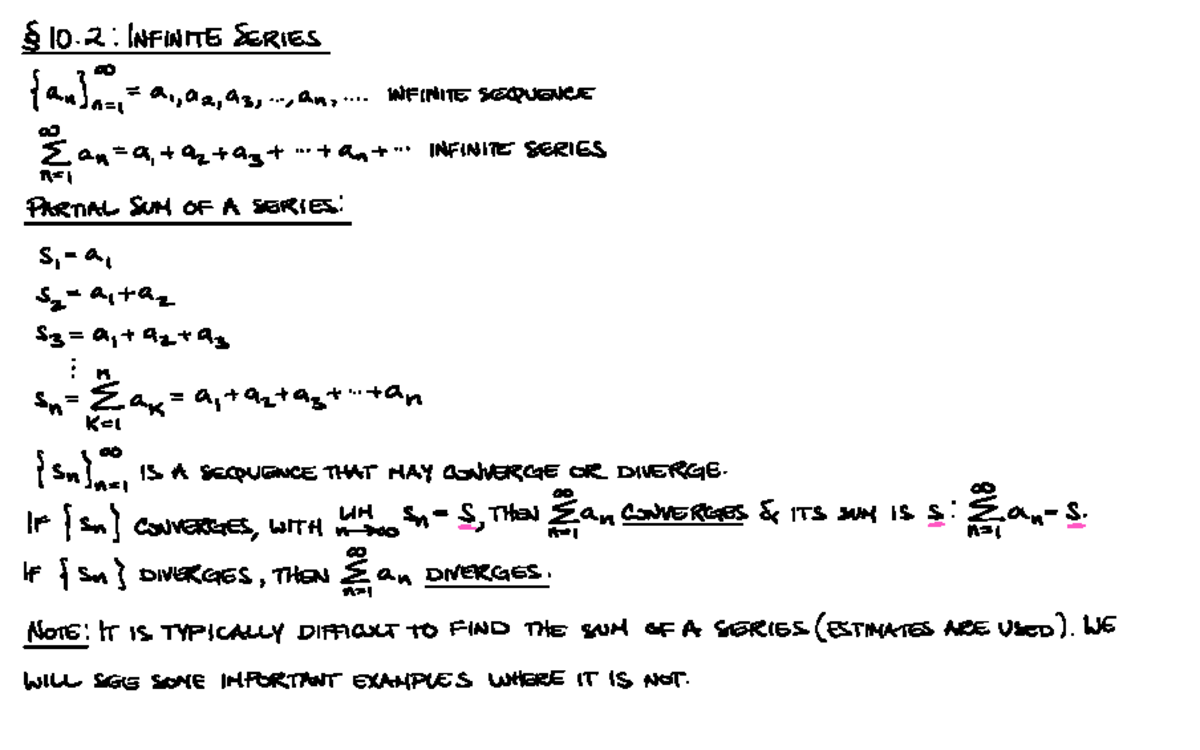 § 10.2: INFINITE SERIES
{aₙ}ₙ₌₁^∞ = a₁, a₂, a₃, ..., aₙ, .... INFINITE SEQUENCE
∑ₙ₌₁^∞ aₙ = a₁ + a₂ + a₃ + ... + aₙ + ... INFINITE SERIES
PARTIAL SUM OF A SERIES:
S₁ = a₁
S₂ = a₁ + a₂
S₃ = a₁ + a₂ + a₃
⋮
Sₙ = ∑ₖ₌₁ⁿ aₖ = a₁ + a₂ + a₃ + ... + aₙ
{Sₙ}ₙ₌₁^∞ IS A SEQUENCE THAT MAY CONVERGE OR DIVERGE.
IF {Sₙ} CONVERGES, WITH LIM n→∞ Sₙ = S, THEN ∑ₙ₌₁^∞ aₙ CONVERGES & ITS SUM IS S: ∑ₙ₌₁^∞ aₙ = S.
IF {Sₙ} DIVERGES, THEN ∑ₙ₌₁^∞ aₙ DIVERGES.
NOTE: IT IS TYPICALLY DIFFICULT TO FIND THE SUM OF A SERIES (ESTIMATES ARE USED). WE
WILL SEE SOME IMPORTANT EXAMPLES WHERE IT IS NOT.